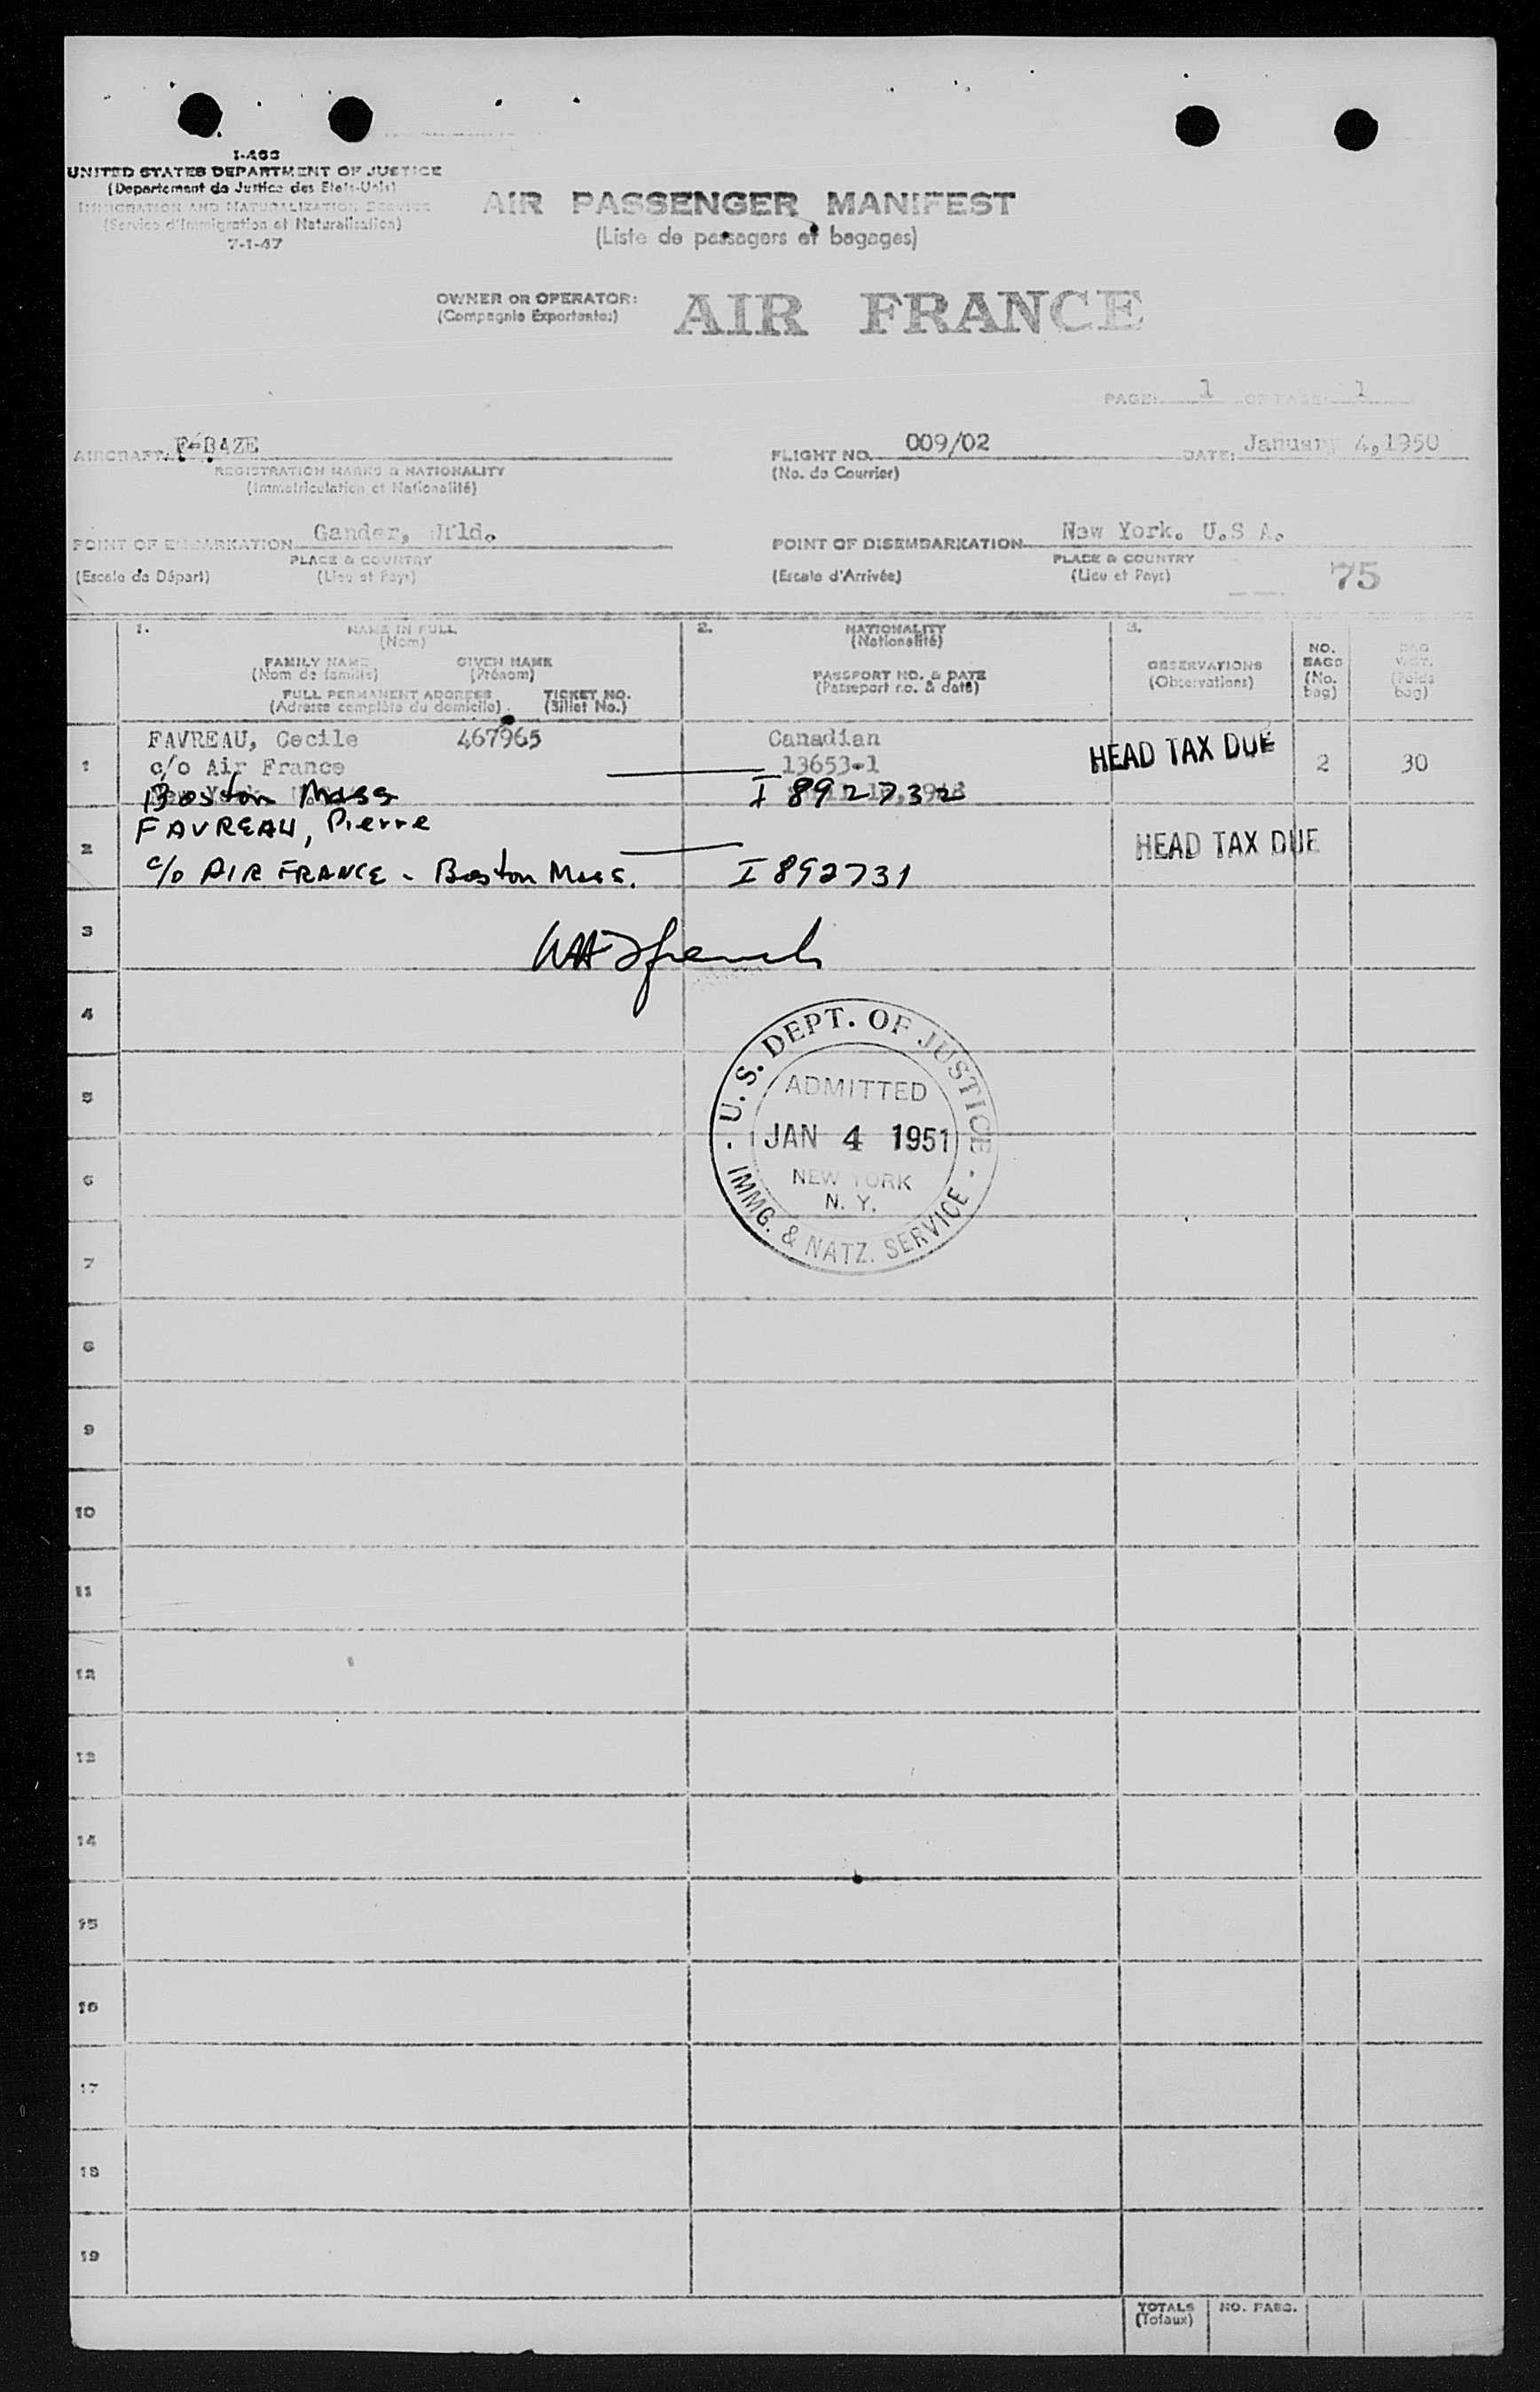 I-466
UNITED STATES DEPARTMENT OF JUSTICE
(Departement de Justice des Etats-Unis)
IMMIGRATION AND NATURALIZATION SERVICE
(Service d'Immigration et Naturalisation)
7-1-47
AIR PASSENGER MANIFEST
(Liste de passagers et bagages)
OWNER OR OPERATOR: AIR FRANCE
(Compagnie Exportante:)
PAGE: 1 OF PAGE: 1
AIRCRAFT: F-BAZE
REGISTRATION MARKS & NATIONALITY
(Immatriculation et Nationalité)
FLIGHT NO. 009/02 DATE: January 4, 1950
(No. de Courrier)
POINT OF EMBARKATION Gander, Nfld.
PLACE & COUNTRY
(Escale de Départ) (Lieu et Pays)
POINT OF DISEMBARKATION New York. U.S A.
PLACE & COUNTRY
(Escale d'Arrivée) (Lieu et Pays) 75
1. NAME IN FULL
(Nom)
FAMILY NAME GIVEN NAME
(Nom de famille) (Prénom)
FULL PERMANENT ADDRESS TICKET NO.
(Adresse complète du domicile) (Billet No.)
2. NATIONALITY
(Nationalité)
PASSPORT NO. & DATE
(Passeport no. & date)
3.
OBSERVATIONS
(Observations)
NO.
BAGS
(No.
bag)
BAG
WGT.
(Poids
bag)
1 FAVREAU, Cecile 467965 Canadian HEAD TAX DUE 2 30
c/o Air France 13653-1
Boston Mass I 892732
2 FAVREAU, Pierre HEAD TAX DUE
c/o AIR FRANCE - Boston Mass. I 892731
3
4
5
6
7
8
9
10
11
12
13
14
15
16
17
18
19
U. S. DEPT. OF JUSTICE
ADMITTED
JAN 4 1951
NEW YORK
N. Y.
IMMG. & NATZ. SERVICE
TOTALS NO. PASG.
(Totaux)